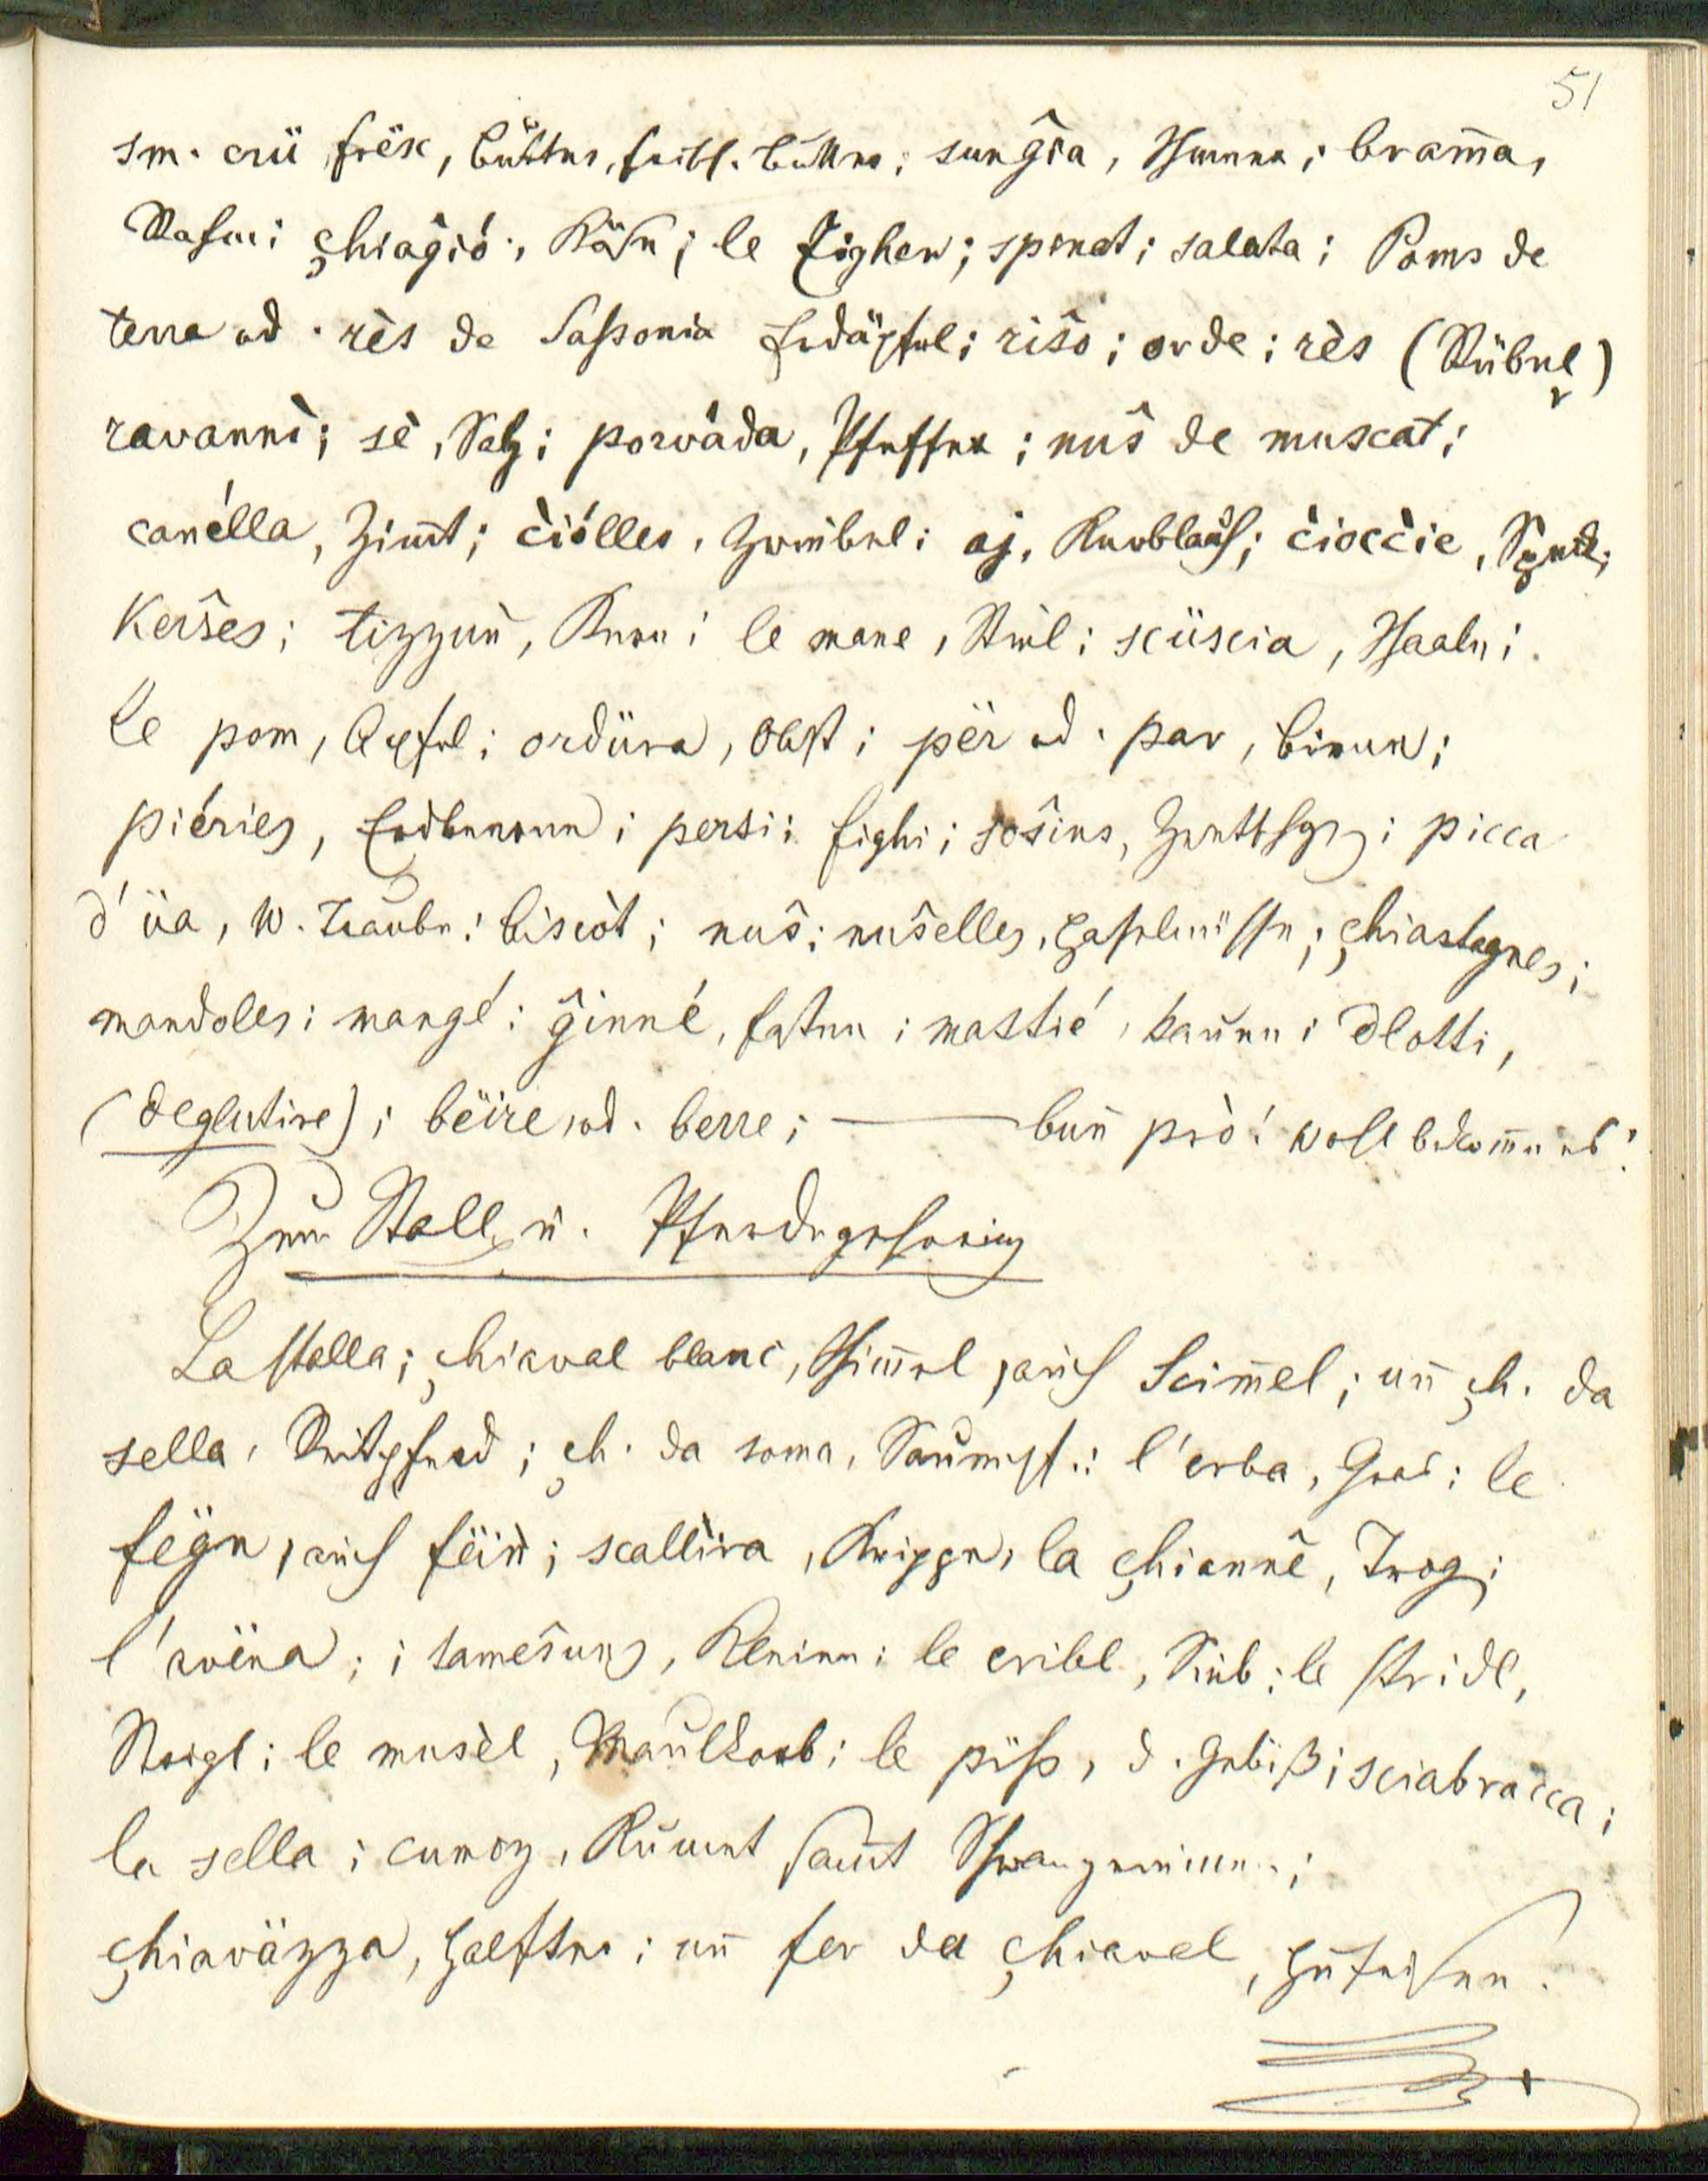 51
sm. crü frësc, Butter, frische Butter; sunĝia, Schmer; bram̄a,
Rahm; çhiaĝió, Käse; le Zigher; spinat; salata; Poms de
terra od. rès de Sassonia Erdäpfel; riŝo; orde; rès (Rübe)
ravannè; sè, Salz; porvàda, Pfeffer; nuŝ de muscat;
canélla, Zim̄t; c̀iólles, Zwiebel; aj, Knoblauch; c̀ioc̀cie, Speck;
Kerŝes; tizzun̄, Kern; le mane, Stiel; scüscia, Schaale;
le pom, Apfel; ordüra, Obst; për od. par, Birnen;
piéries, Erdbeeren; persi; fighi; soŝins, Zwetschgen; picca
d'üa, W. Traube; biscòt; nuŝ; nuŝelles, Haselnüsse; çhiastagnes;
mandoles; mangé; ĝinné, mastié, kauen; dlotti,
(deglutire); bëire od. berre; — bun̄ prò! wohl bekom̄e es!
Zum Stall u. Pferdegeschirr
La stalla; çhiaval blanc, Schim̄el, auch Scim̄el; un̄ çh. da
sella, Reitpferd; çh. da soma, Saumpf.; l'erba, Gras; le
fëgn, auch fëin̄; scallira, Krippe, la çhiannê, Trog;
l'avëna; i sameŝuns, Kleien; le cribl, Sieb; le stridl,
Strigl; le musèl, Maulkorb; le piss, d. Gebiß; sciabracca;
la sella; cumoz, Kumet sam̄t
çhiaväzza, Halfter; un̄ fer da çhiaval, Hufeisen.